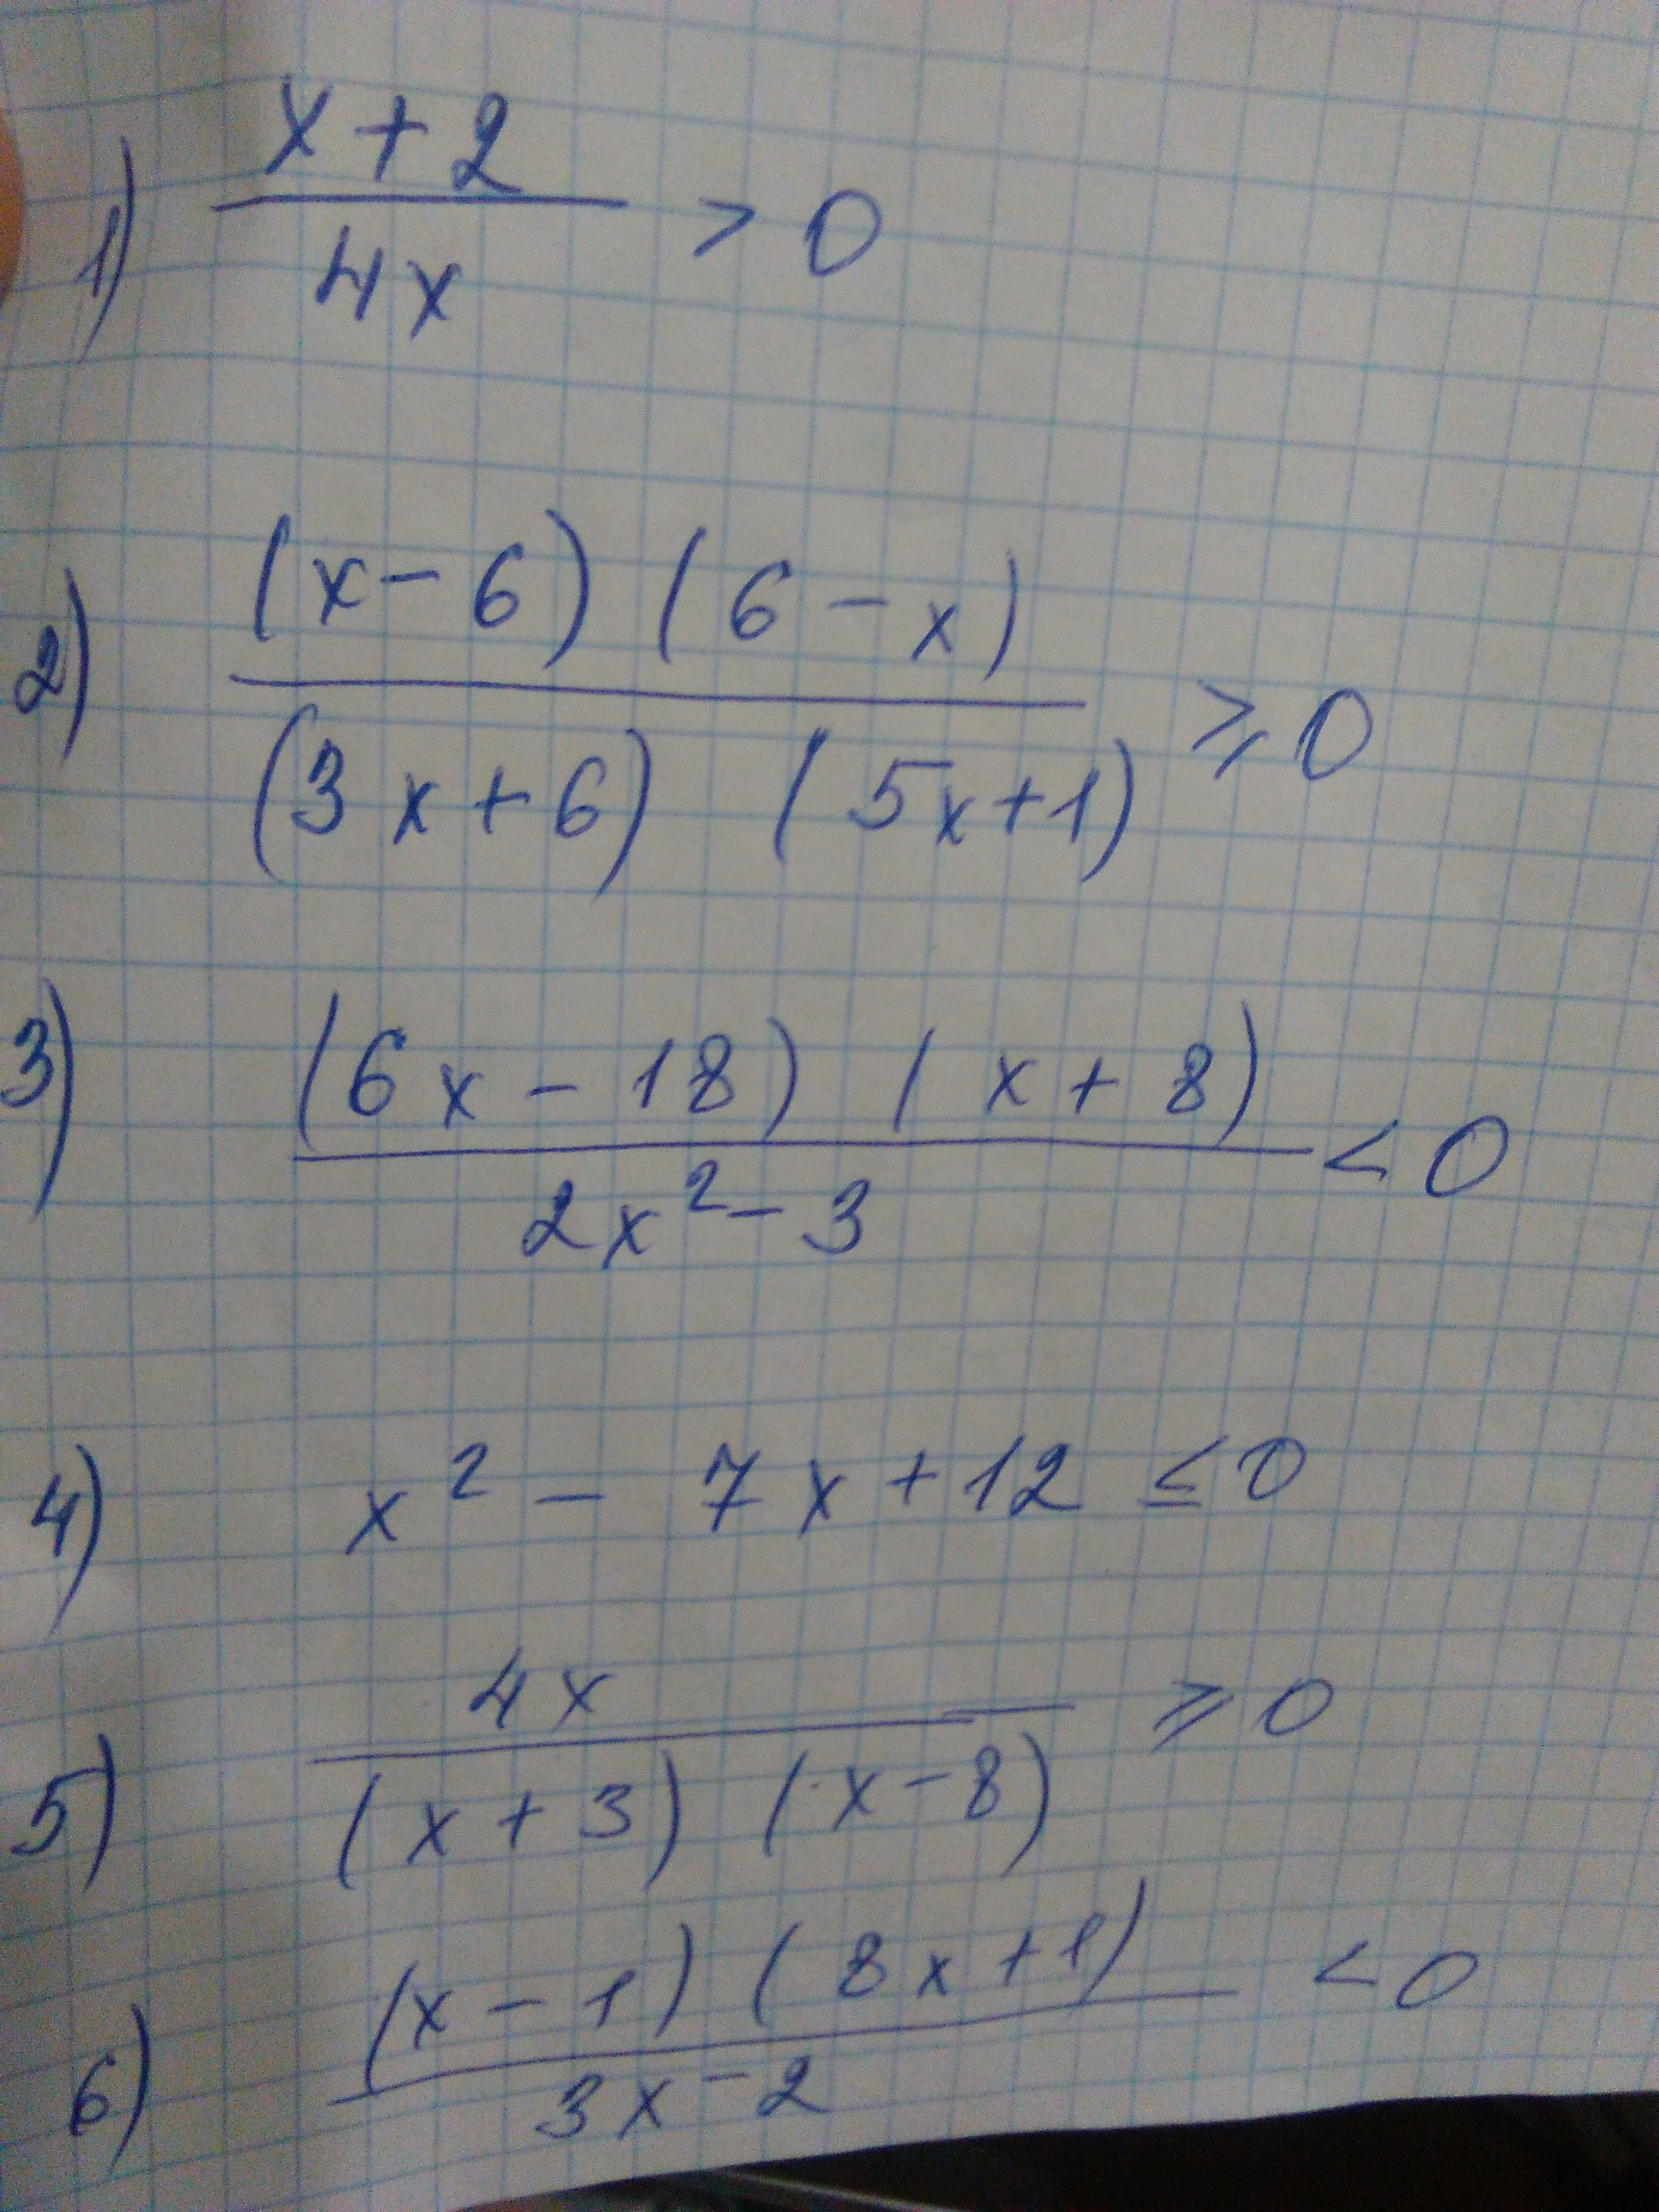 1) x + 2 / 4x > 0
2) (x - 6) (6 - x) / (3x + 6) (5x + 1) ⩾ 0
3) (6x - 18) (x + 8) / 2x² - 3 < 0
4) x² - 7x + 12 ≤ 0
5) 4x / (x + 3) (x - 8) ⩾ 0
6) (x - 1) (8x + 1) / 3x - 2 < 0